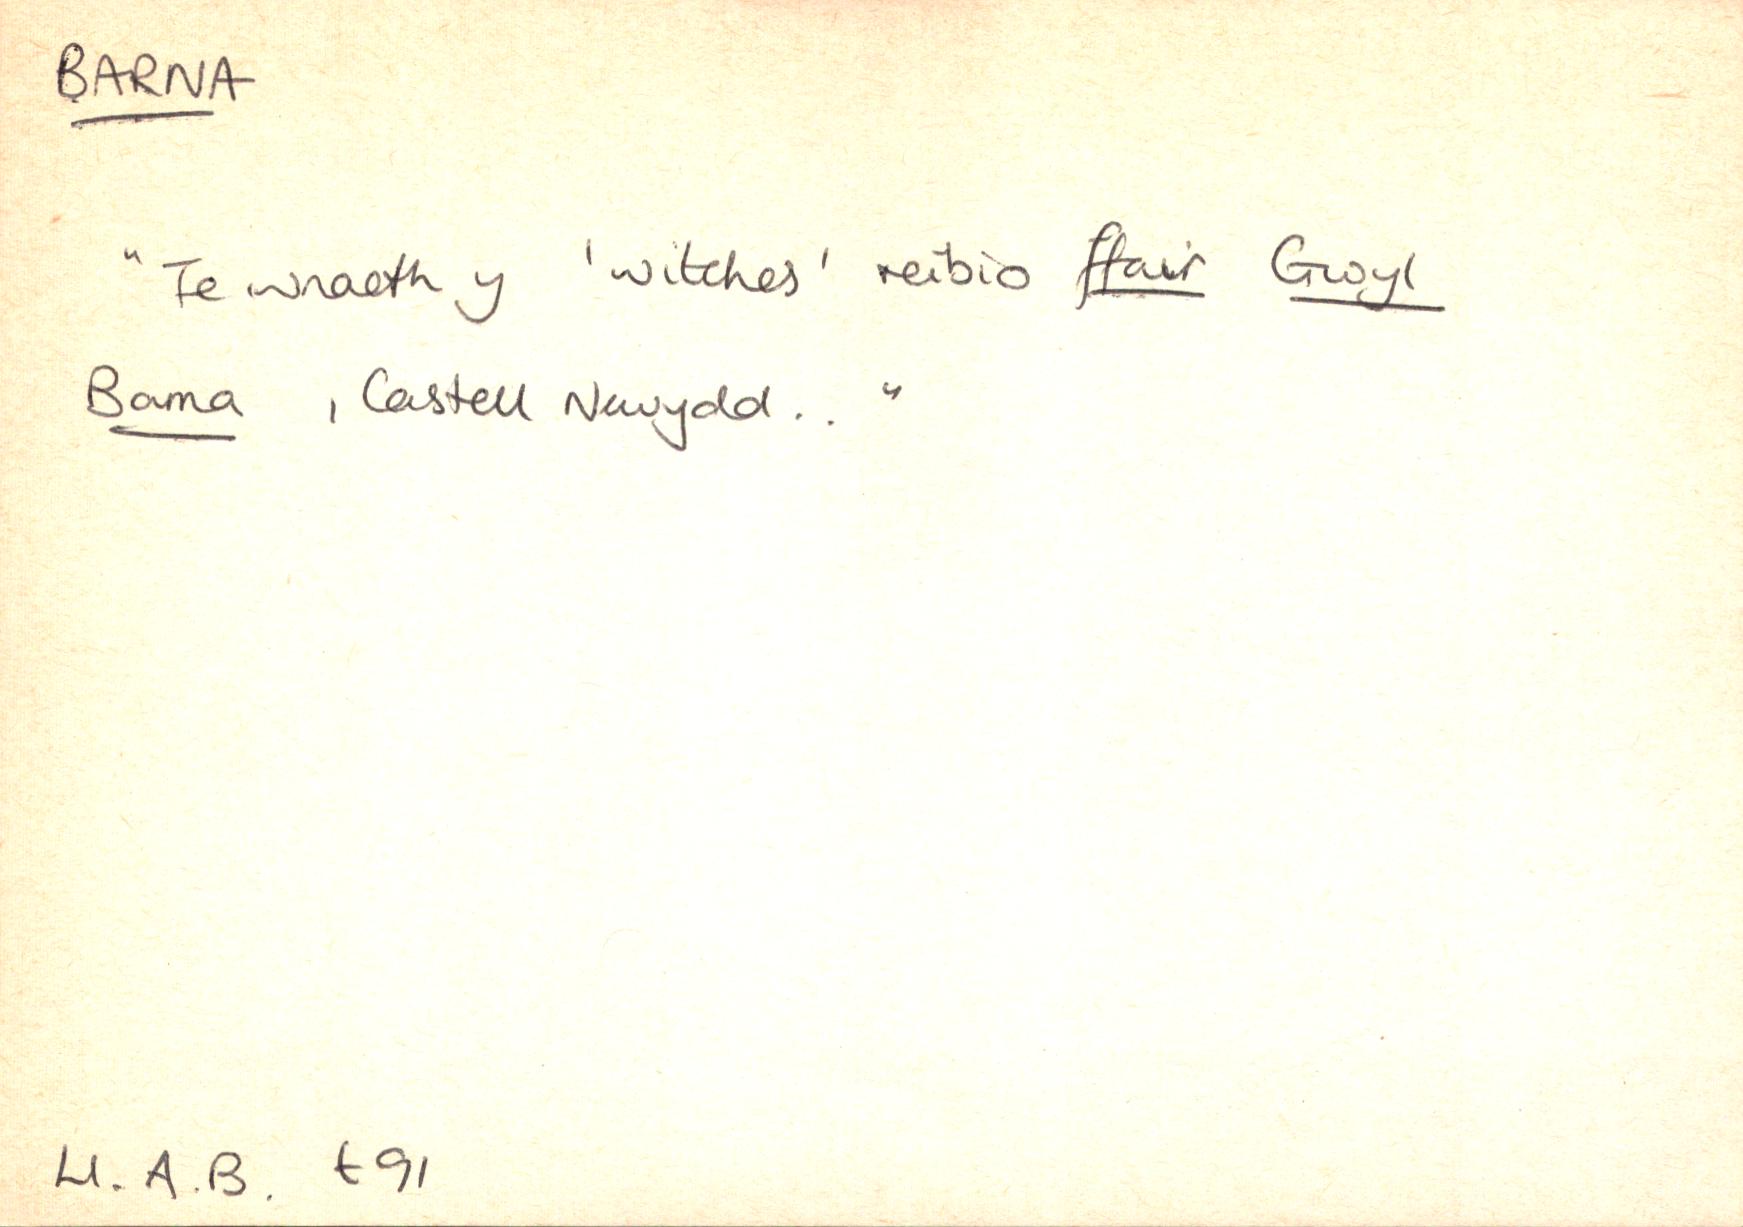 BARNA
"Fe wnaeth y 'witches' reibio ffair Gwyl
Barna , Castell Newydd . . "
Ll. A. B. t91